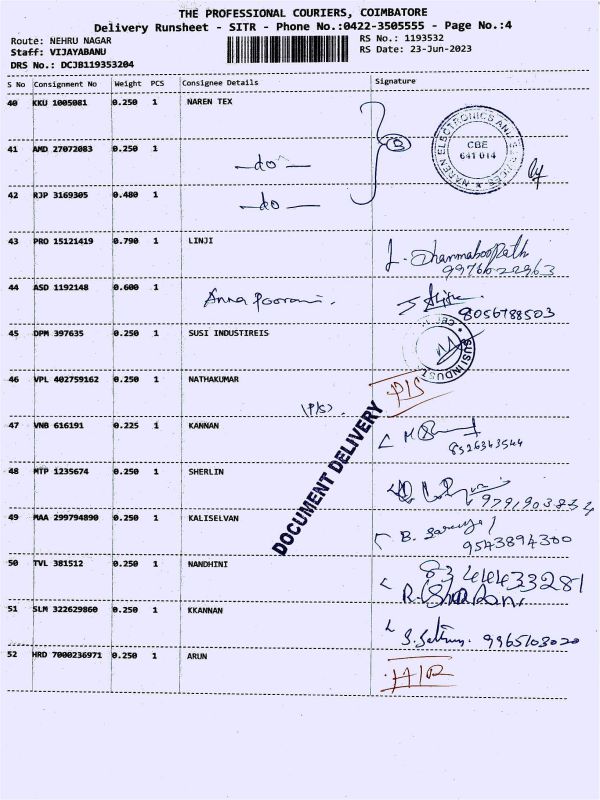 THE PROFESSIONAL COURIERS, COIMBATORE
Delivery Runsheet - SITR - Phone No.:0422-3505555 - Page No.:4
Route: NEHRU NAGAR
RS No.: 1193532
Staff: VIJAYABANU
RS Date: 23-Jun-2023
DRS No.: DCJB119353204
S No Consignment No Weight PCS Consignee Details Signature
40 KKU 1005081 0.250 1 NAREN TEX
NAREN ELECTRONICS AND SERVICES
CBE
641 014
41 AMD 27072083 0.250 1
-do-
42 RJP 3169305 0.480 1
-do-
43 PRO 15121419 0.790 1 LINJI
9976622963
44 ASD 1192148 0.600 1
Anna Poorani.
8056788503
45 DPM 397635 0.250 1 SUSI INDUSTIREIS
SUSI INDUST
46 VPL 402759162 0.250 1 NATHAKUMAR
P/S
(P/S).
47 VNB 616191 0.225 1 KANNAN
8526343544
48 MTP 1235674 0.250 1 SHERLIN
9791903834
49 MAA 299794890 0.250 1 KALISELVAN
9543894300
50 TVL 381512 0.250 1 NANDHINI
8344433281
51 SLM 322629860 0.250 1 KKANNAN
9965103020
52 HRD 7000236971 0.250 1 ARUN
DOCUMENT DELIVERY